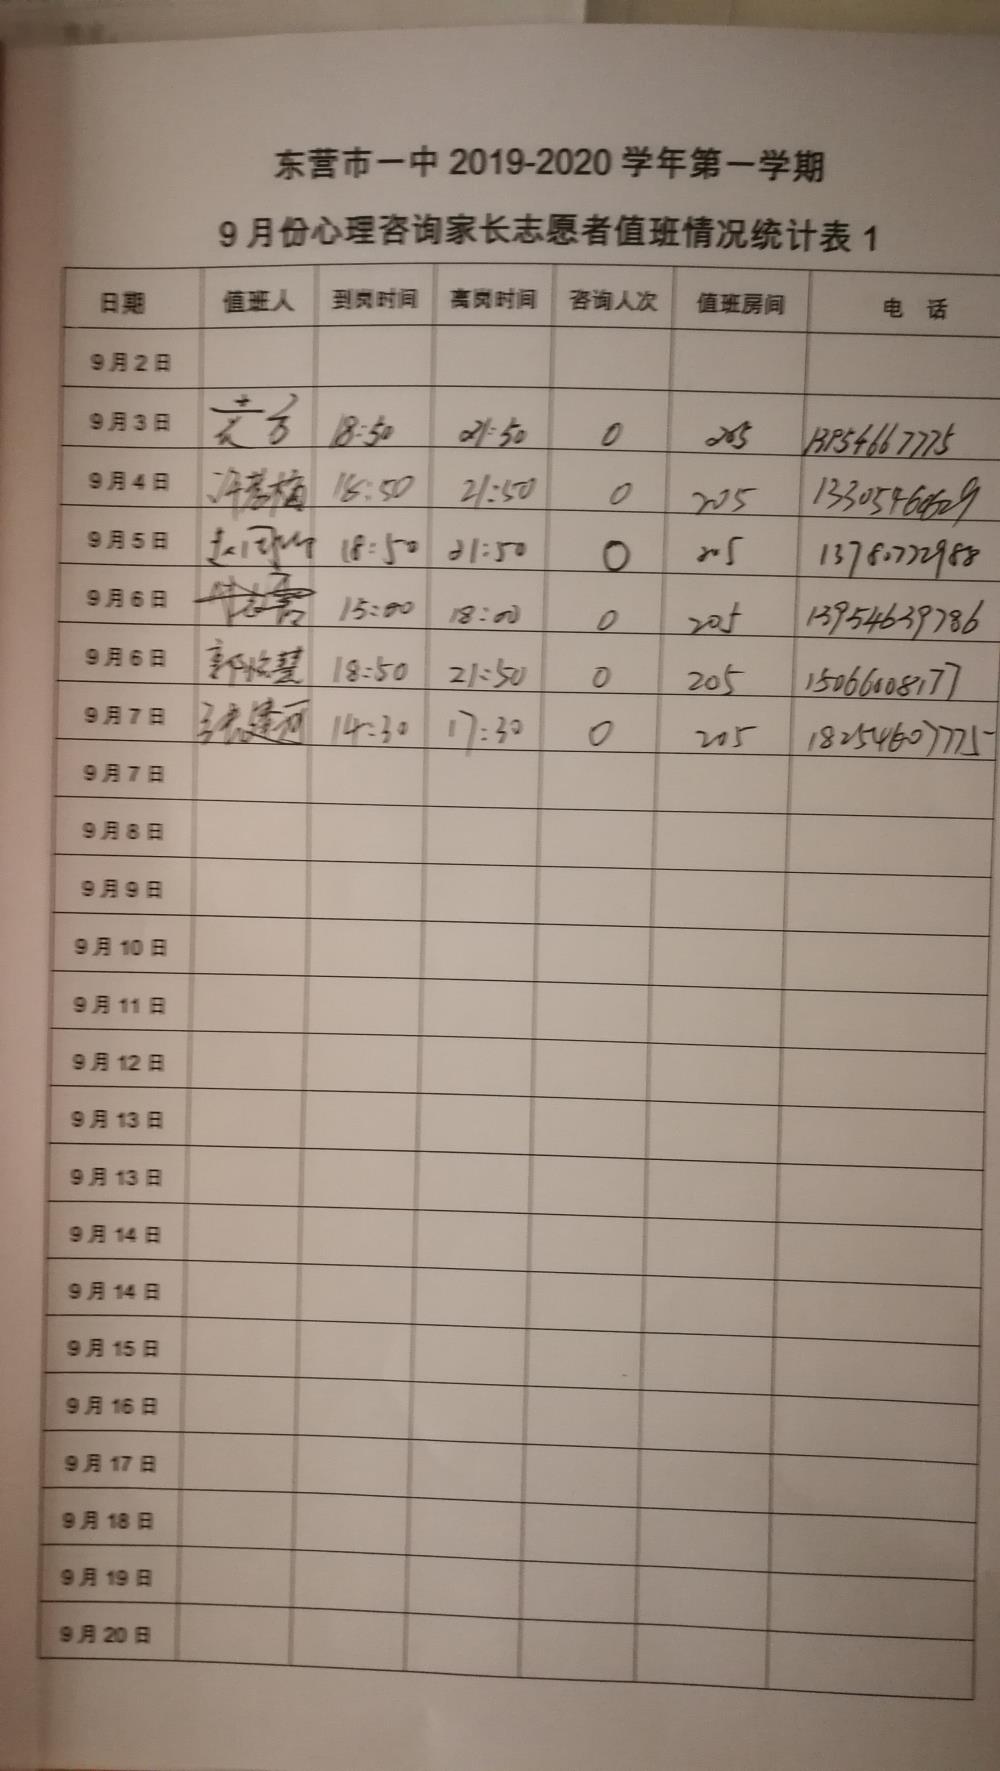 东营市一中 2019-2020 学年第一学期
9 月份心理咨询家长志愿者值班情况统计表 1
日期 值班人 到岗时间 离岗时间 咨询人次 值班房间 电 话
9 月 2 日
9 月 3 日 18:50 21:50 0 205
9 月 4 日 18:50 21:50 0 205
9 月 5 日 18:50 21:50 0 205 13780772988
9 月 6 日 15:00 18:00 0 205 13954639786
9 月 6 日 18:50 21:50 0 205 15066008177
9 月 7 日 14:30 17:30 0 205 18254607775
9 月 7 日
9 月 8 日
9 月 9 日
9 月 10 日
9 月 11 日
9 月 12 日
9 月 13 日
9 月 13 日
9 月 14 日
9 月 14 日
9 月 15 日
9 月 16 日
9 月 17 日
9 月 18 日
9 月 19 日
9 月 20 日